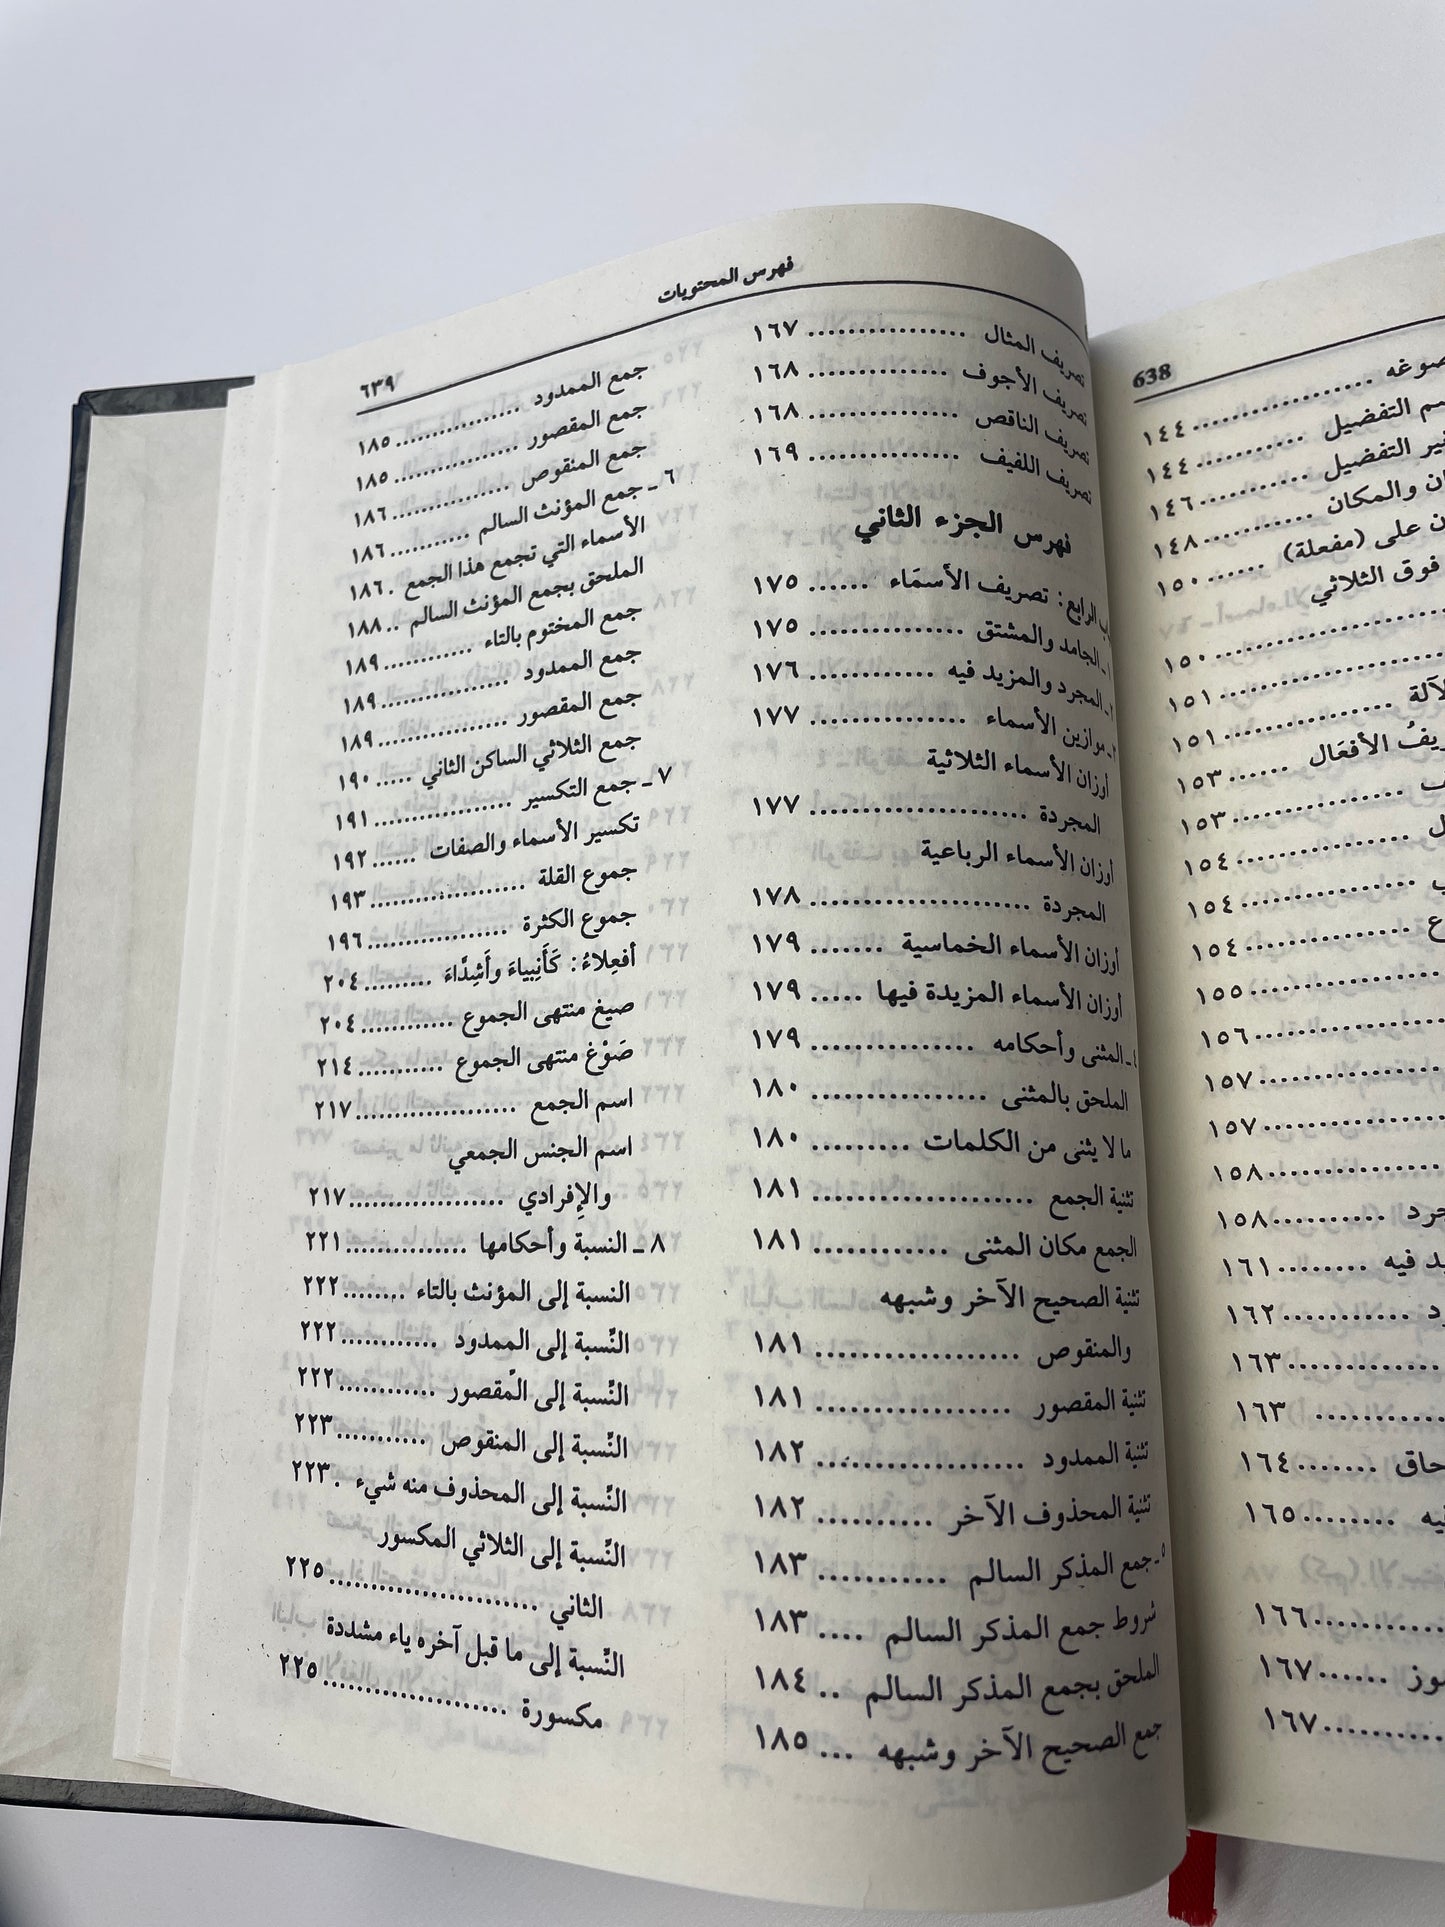 638
صوغه .................. ١٤٤
سم التفضيل ........... ١٤٤
التفضيل ............ ١٤٦
والمكان ............ ١٤٨
على (مفعلة) ...... ١٥٠
فوق الثلاثي
.................... ١٥٠
.................... ١٥١
الآلة .............. ١٥١
الأفعَال ...... ١٥٣
.................... ١٥٣
.................... ١٥٤
.................... ١٥٤
.................... ١٥٤
.................... ١٥٥
.................... ١٥٦
.................... ١٥٧
.................... ١٥٧
.................... ١٥٨
.................... ١٥٨
فيه ........ ١٦١
.................... ١٦٢
.................... ١٦٣
.................... ١٦٣
.................... ١٦٤
.................... ١٦٥
.................... ١٦٦
.................... ١٦٧
.................... ١٦٧
فهرس المحتويات
٦٣٩
تصريف المثال ................ ١٦٧
تصريف الأجوف .............. ١٦٨
تصريف الناقص ............... ١٦٨
تصريف اللفيف ............... ١٦٩
فهرس الجزء الثاني
الرابع: تصريف الأسمَاء ...... ١٧٥
١ ـ الجامد والمشتق ............... ١٧٥
٢ ـ المجرد والمزيد فيه ............ ١٧٦
٣ ـ موازين الأسماء ............... ١٧٧
أوزان الأسماء الثلاثية
المجردة ..................... ١٧٧
أوزان الأسماء الرباعية
المجردة ..................... ١٧٨
أوزان الأسماء الخماسية ....... ١٧٩
أوزان الأسماء المزيدة فيها ..... ١٧٩
٤ ـ المثنى وأحكامه ................ ١٧٩
الملحق بالمثنى ................. ١٨٠
ما لا يثنى من الكلمات ......... ١٨٠
تثنية الجمع ..................... ١٨١
الجمع مكان المثنى ............. ١٨١
تثنية الصحيح الآخر وشبهه
والمنقوص .................... ١٨١
تثنية المقصور .................. ١٨١
تثنية الممدود ................... ١٨٢
تثنية المحذوف الآخر .......... ١٨٢
٥ ـ جمع المذكر السالم ............ ١٨٣
شروط جمع المذكر السالم .... ١٨٣
الملحق بجمع المذكر السالم .. ١٨٤
جمع الصحيح الآخر وشبهه ... ١٨٥
جمع الممدود ................ ١٨٥
جمع المقصور ................ ١٨٥
جمع المنقوص ............... ١٨٦
٦ ـ جمع المؤنث السالم ........... ١٨٦
الأسماء التي تجمع هذا الجمع . ١٨٦
الملحق بجمع المؤنث السالم .. ١٨٨
جمع المختوم بالتاء ............ ١٨٩
جمع الممدود ................. ١٨٩
جمع المقصور ................. ١٨٩
جمع الثلاثي الساكن الثاني ..... ١٩٠
٧ ـ جمع التكسير .................. ١٩١
تكسير الأسماء والصفات ...... ١٩٢
جموع القلة .................... ١٩٣
جموع الكثرة .................. ١٩٦
أفعِلاءُ: كَأَنبِياءَ وأَشِدَّاءَ ......... ٢٠٤
صيغ منتهى الجموع ............ ٢٠٤
صَوْغ منتهى الجموع ........... ٢١٤
اسم الجمع .................... ٢١٧
اسم الجنس الجمعي
والإفرادي .................... ٢١٧
٨ ـ النسبة وأحكامها ............... ٢٢١
النسبة إلى المؤنث بالتاء ........ ٢٢٢
النِّسبة إلى الممدود ............ ٢٢٢
النِّسبة إلى المقصور ............ ٢٢٢
النِّسبة إلى المنقوص ........... ٢٢٣
النِّسبة إلى المحذوف منه شيء . ٢٢٣
النِّسبة إلى الثلاثي المكسور
الثاني ....................... ٢٢٥
النِّسبة إلى ما قبل آخره ياء مشددة
مكسورة ..................... ٢٢٥